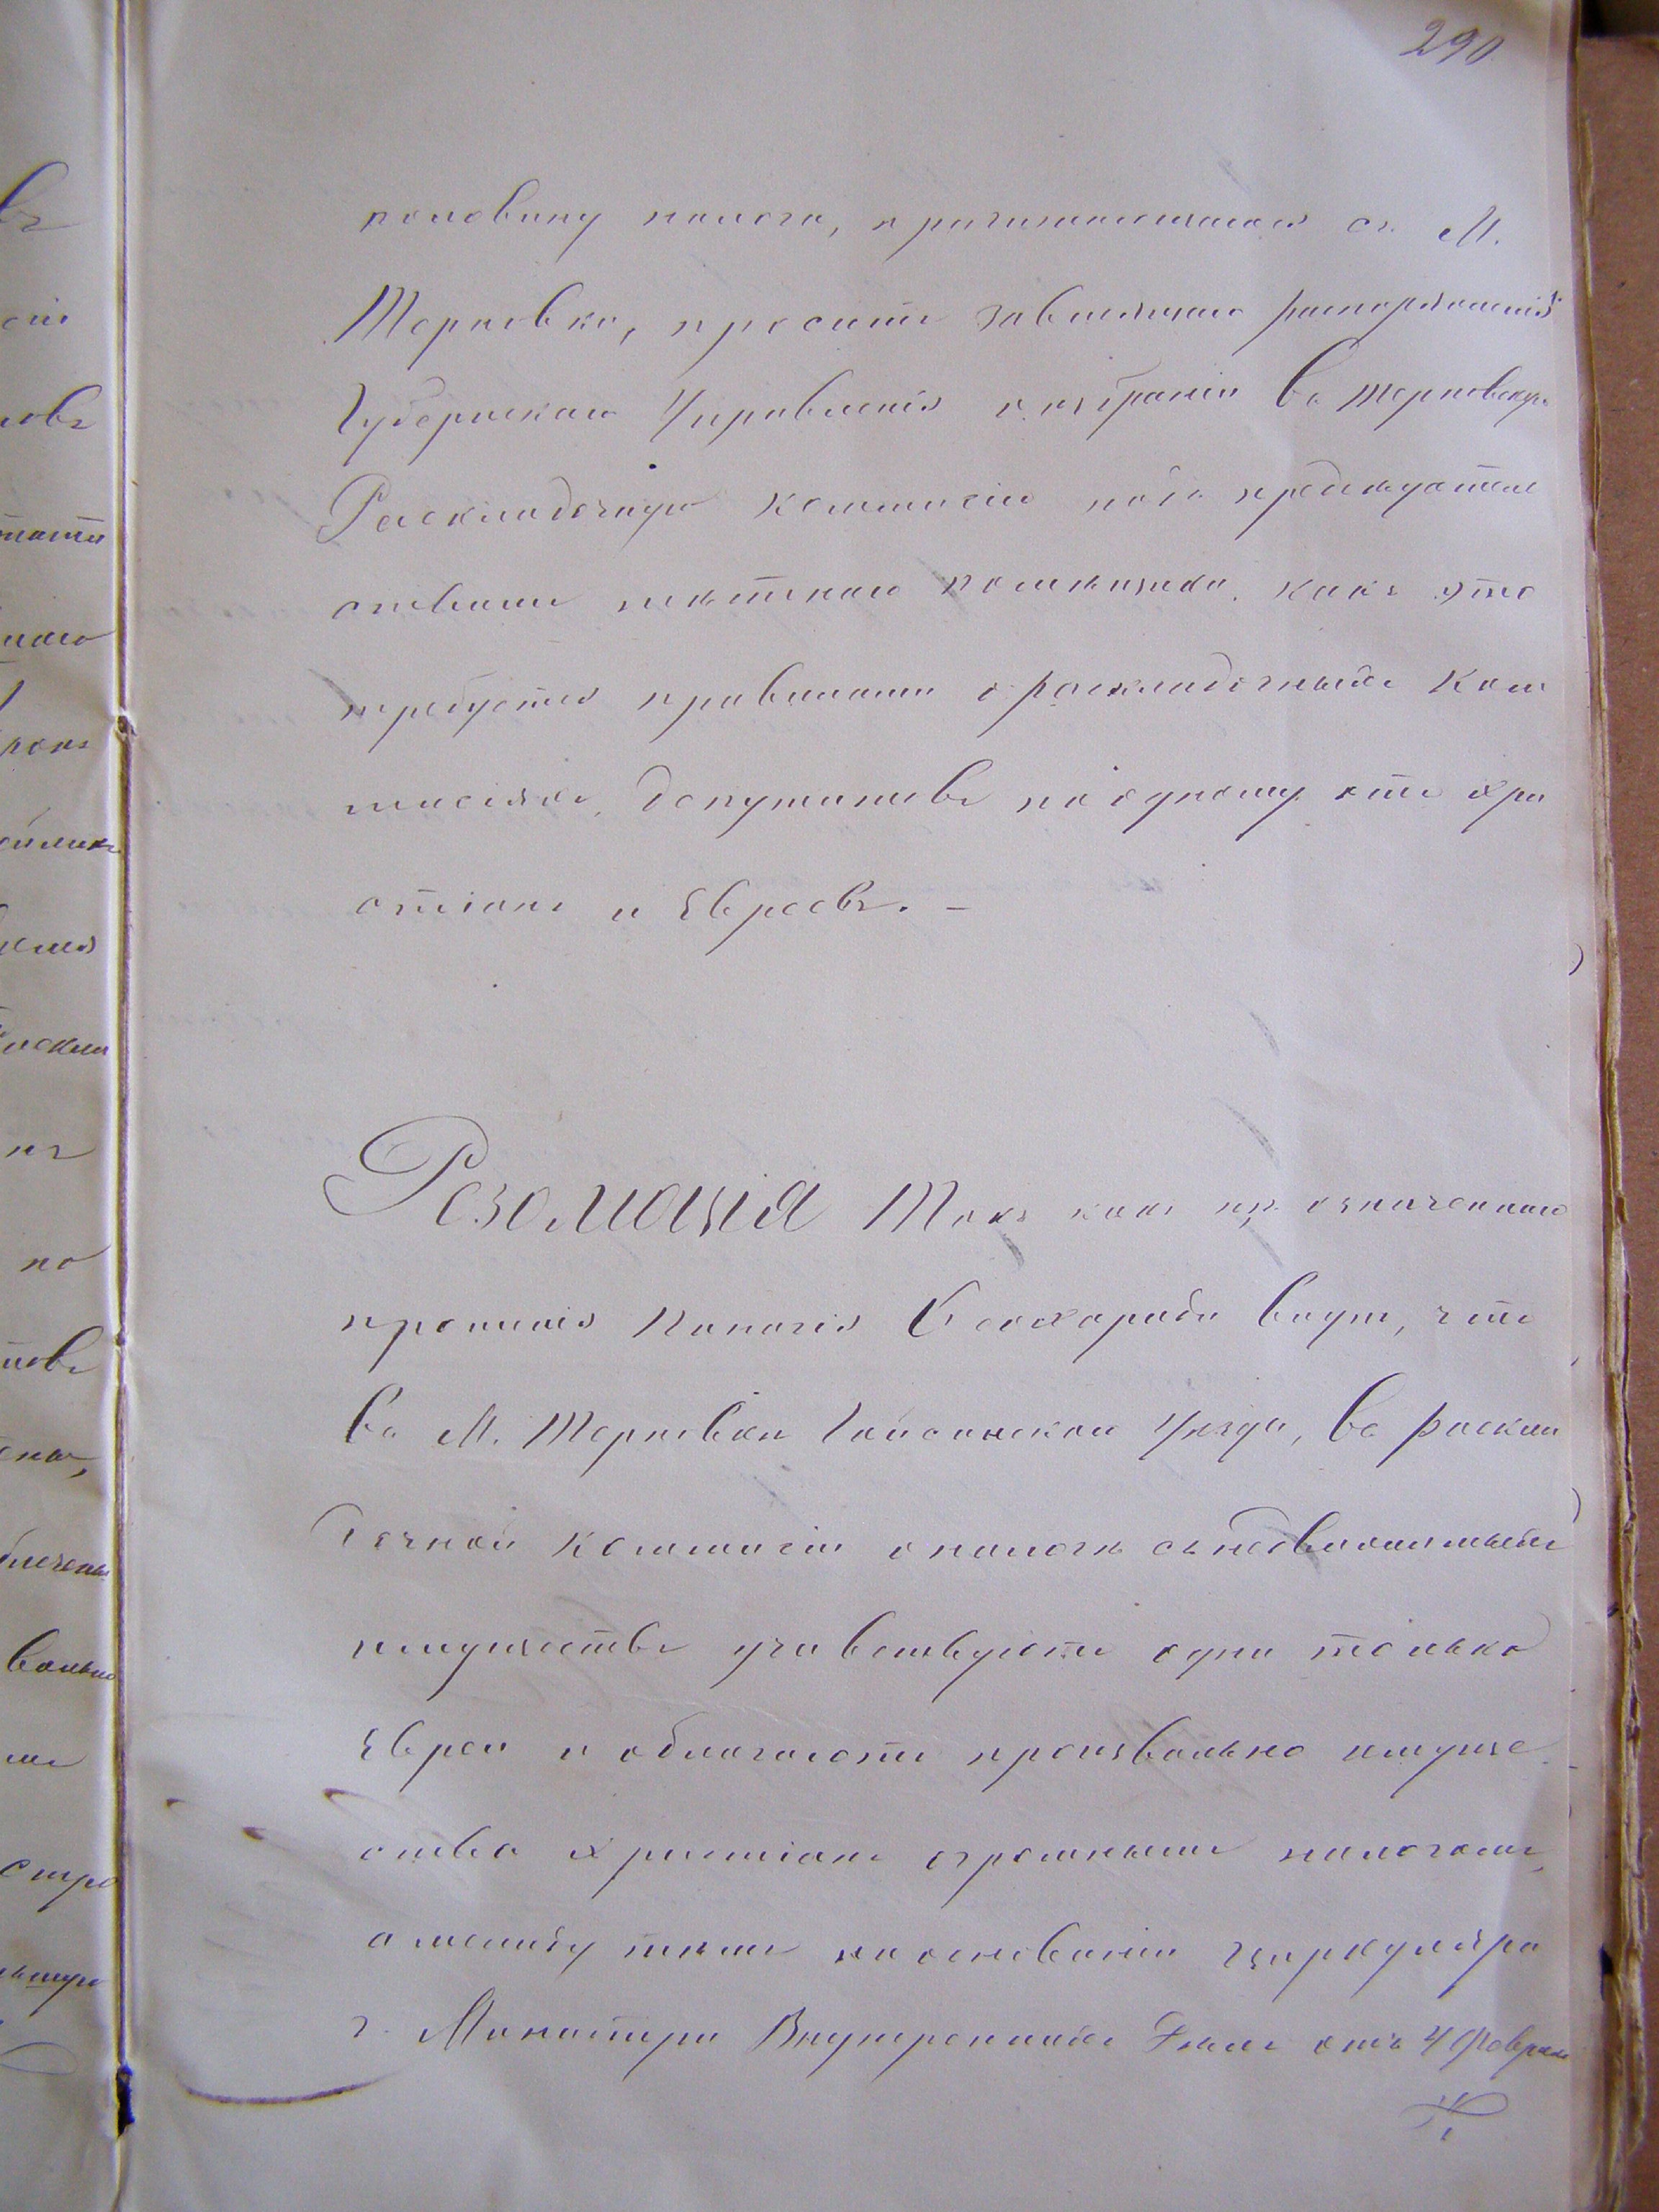 290
половину налога, причитающагося съ М.
Терновки, проситъ зависящаго распоряженія
Губернскаго Управленія о избраніи въ Терновскую
Раскладочную Коммисію подъ предсѣдатель
ствомъ мѣстнаго помѣщика, какъ это
требуется правилами о раскладочныхъ Ком
мисіяхъ, депутатовъ по одному отъ хри
стіанъ и Евреевъ. –
Резолюція Такъ какъ изъ означеннаго
прошенія Панагія видно, что
въ М. Терновки Гайсинскаго Уѣзда, въ раскла
дочной Коммисіи о налогѣ съ недвижимыхъ
имуществъ участвуютъ одни только
Евреи и облагаютъ произвольно имуще
ства христіанъ огромными налогами,
а между тѣмъ на основаніи циркуляра
г. Министра Внутреннихъ Дѣлъ отъ 4 Февраля
ловъ
наго
но